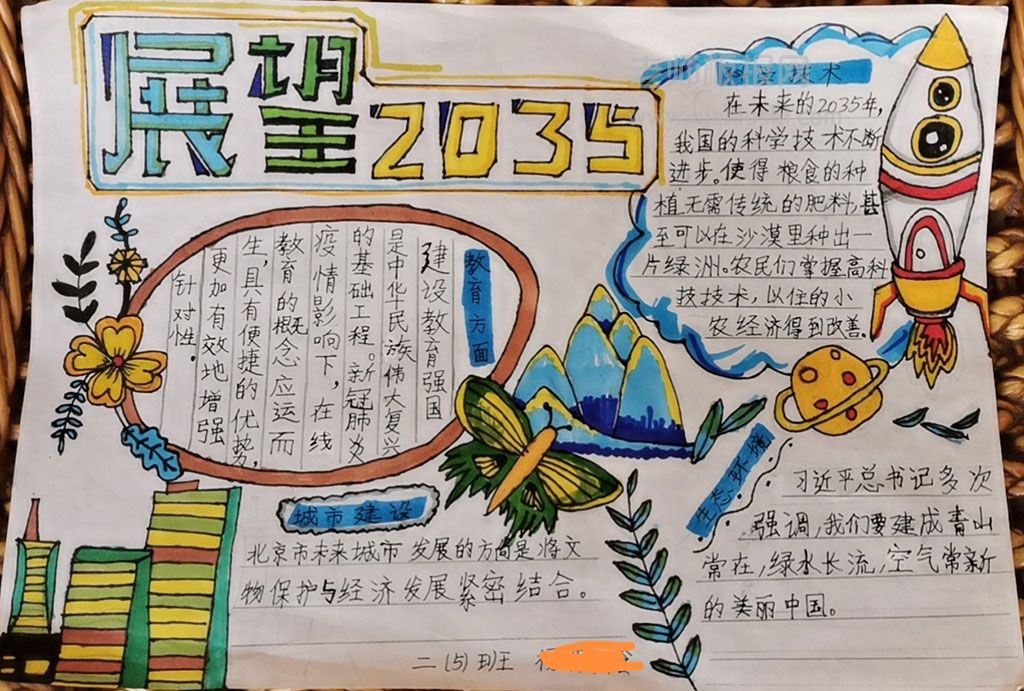 展望2035
科学技术
在未来的2035年,
我国的科学技术不断
进步。使得粮食的种
植无需传统的肥料,甚
至可以在沙漠里种出一
片绿洲。农民们掌握高科
技技术,以往的小
农经济得到改善。
教育方面
建设教育强国
是中华民族伟大复兴
的基础工程。新冠肺炎
疫情影响下,在线
教育的概念应运而
生,具有便捷的优势,
更加有效地增强
针对性。
城市建设
北京市未来城市发展的方向是将文
物保护与经济发展紧密结合。
生态环境
习近平总书记多次
强调,我们要建成青山
常在,绿水长流,空气常新
的美丽中国。
二(5)班